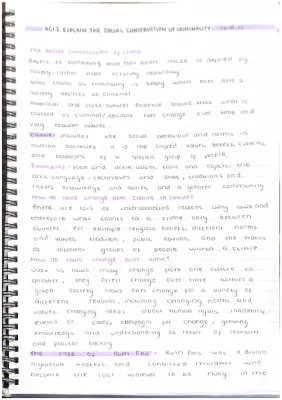 AC1.2 EXPLAIN THE SOCIAL CONSTRUCTION OF CRIMINALITY
The Social Construction of Crime
Refers to something that has been made or defined by
society, rather than occuring naturally.
What counts as criminality is simply whatever acts a
society defines as criminal.
Historical and cross-cultural evidence shows that what is
classed as criminal/deviant can change over time and
vary between cultures.
Culture includes the social behaviour and norms in
human societies - it is the shared values, beliefs, customs,
and traditions of a specific group of people.
Examples: food and drink, values, codes and customs, the
arts, language, and traditions and
rituals, knowledge and beliefs, and a greater community
How do laws change from culture to culture?
There are lots of interrelated reasons why laws and
therefore what counts as a crime vary between
cultures. For example: religious beliefs, different norms
and values, tradition, public opinion, and the status
of different groups of people within a culture.
How do laws change over time?
Just as laws may change from one culture to
another, they often change over time within a
given society. Laws can change for a variety of
different reasons, including changing norms and
values, changing ideas about human rights, landmark
events or cases, campaigns for change, growing
knowledge and understanding as result of research
and political backing.
The case of Ruth Ellis - Ruth Ellis was a British
nightclub hostess and convicted murderer who
became the last woman to be hung in the